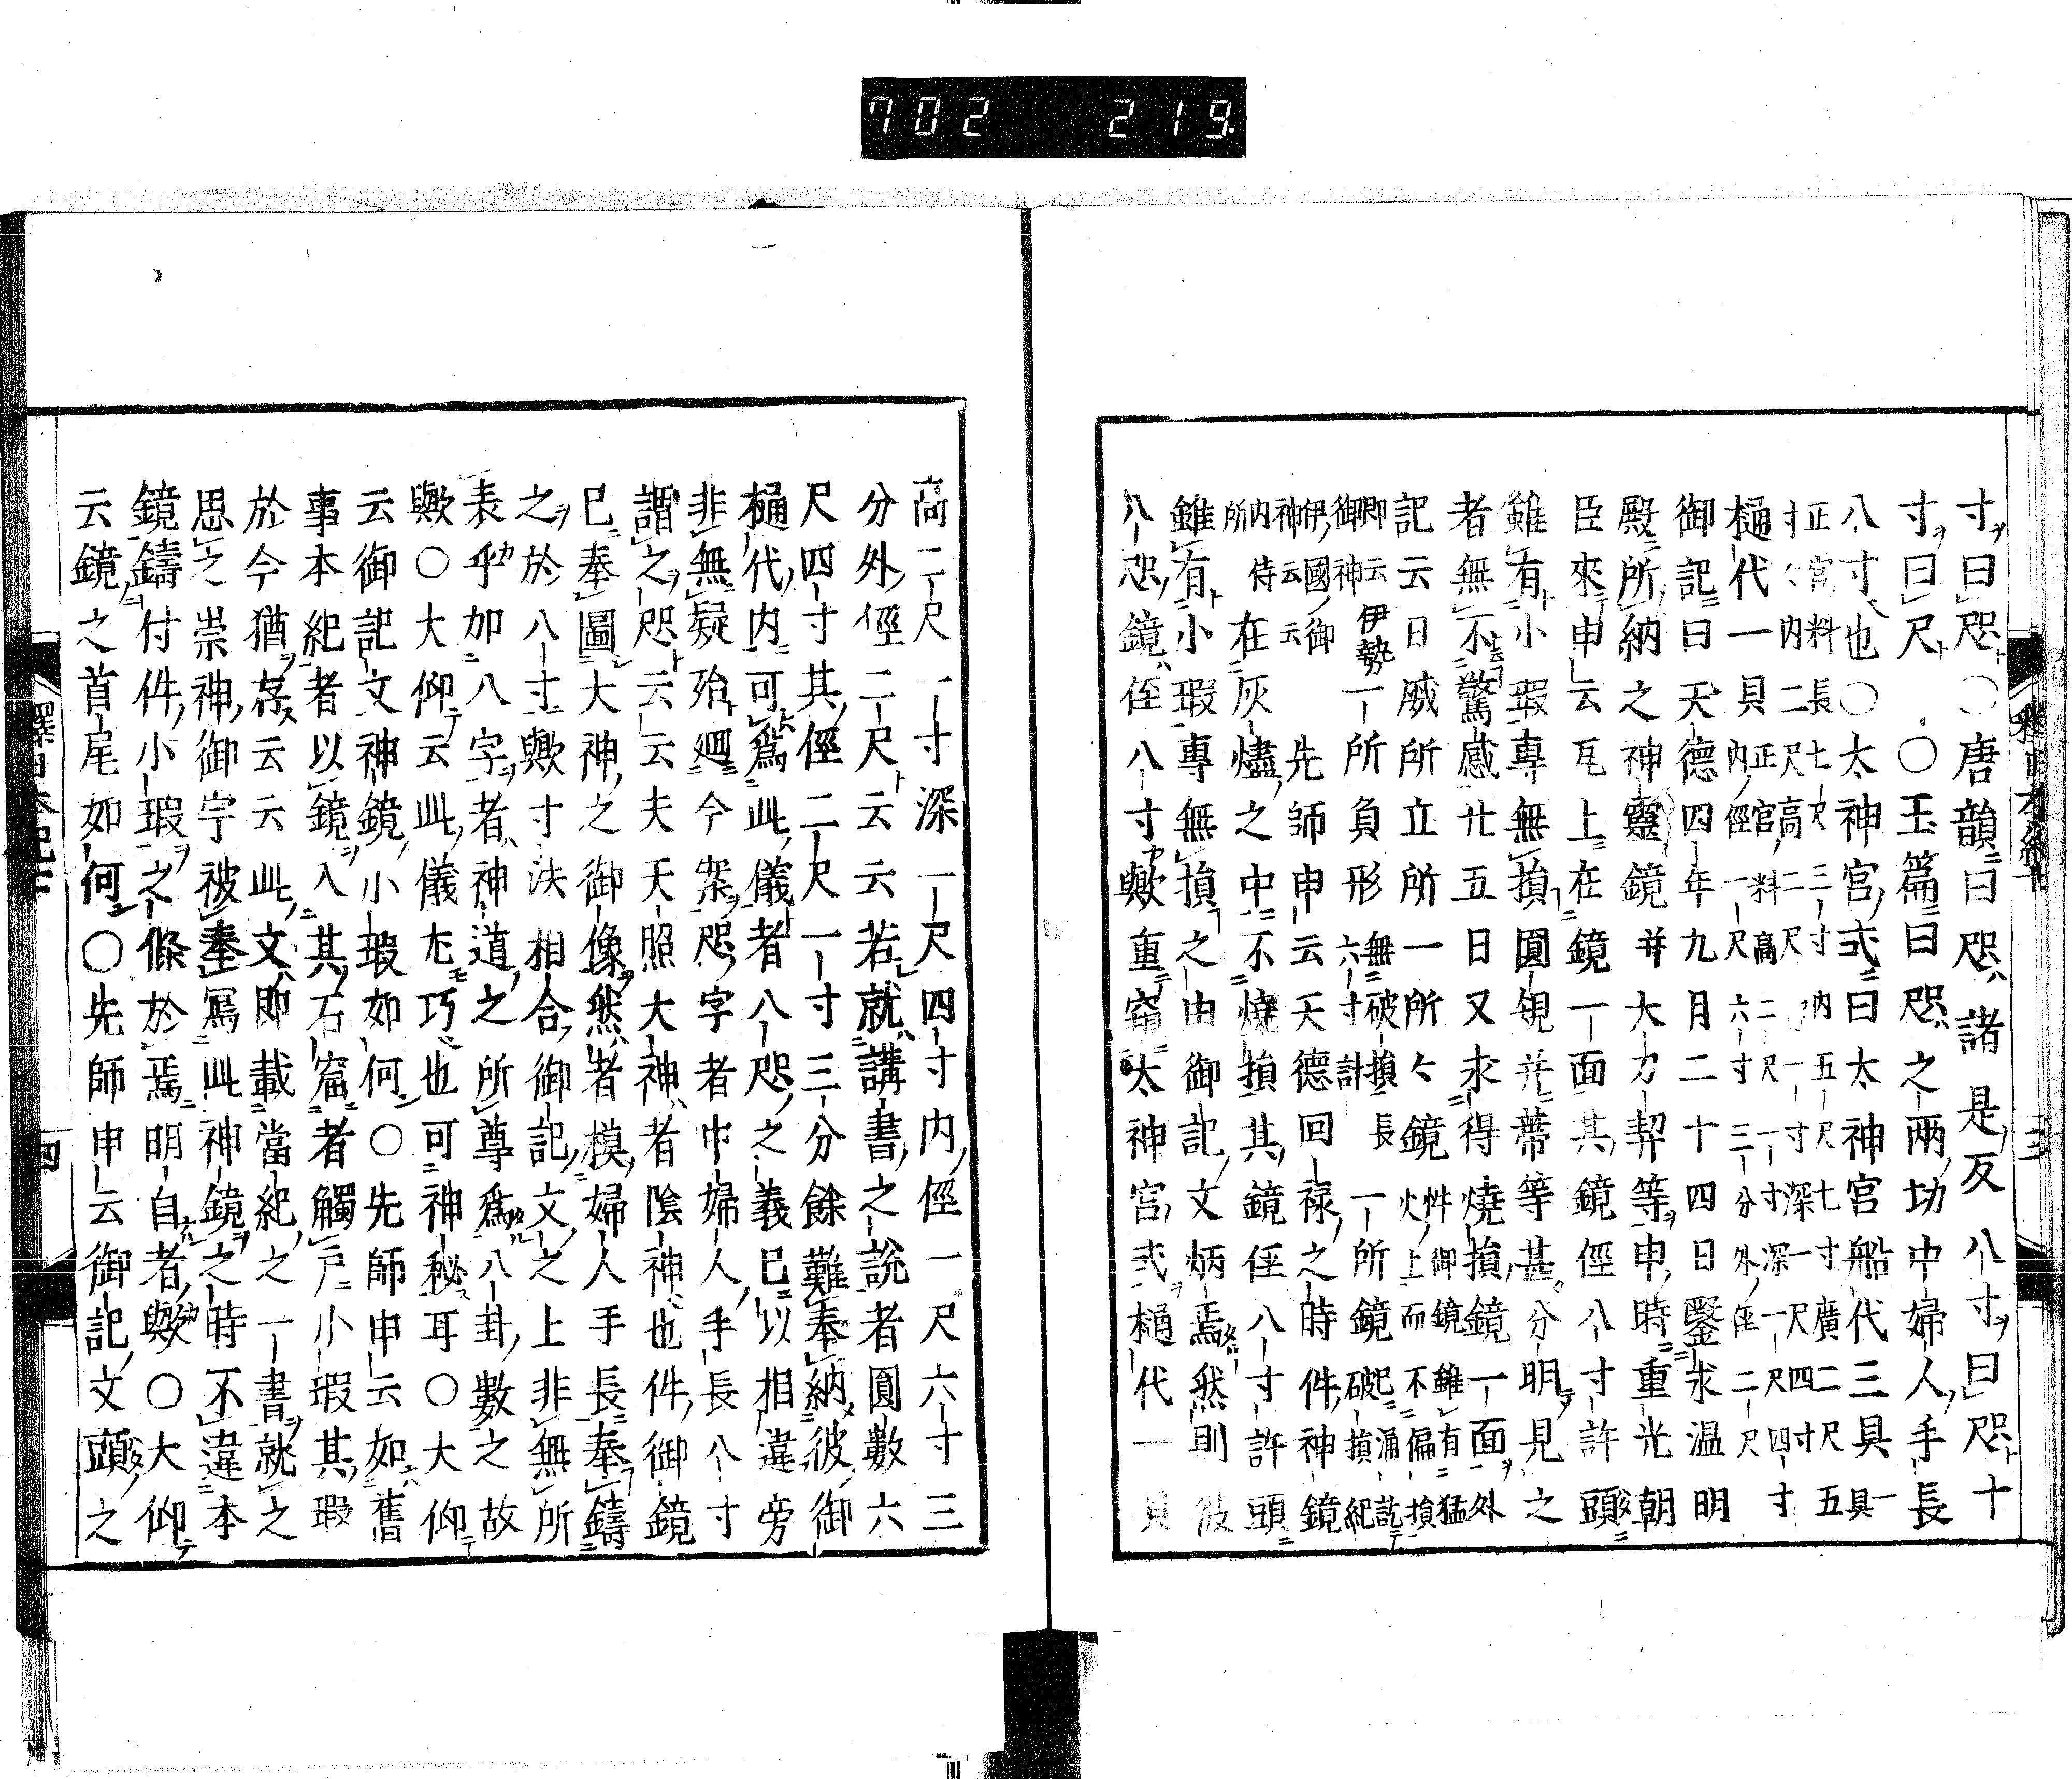 702 219
寸曰咫○唐韻曰咫諸是反八寸曰咫十
寸曰尺○玉篇曰咫之兩切中婦人手長
八寸也○太神宮式曰太神宮船代三具一具
正宮料長七尺三寸内五尺七寸廣二尺五
寸々内二尺高二尺内一寸深一尺四寸
樋代一具正宮料高二尺一寸深一尺四寸
内徑一尺六寸三分外徑二尺
御記曰天德四年九月二十四日鑿求温明
殿所納之神靈鏡并大刀契等申時重光朝
臣來申云瓦上在鏡一面其鏡徑八寸許頭
雖有小瑕專無損圓規并蔕等甚分明見之
者無不驚感廿五日又求得燒損鏡一面外
記云日威所立所一所々鏡件御鏡雖有猛
火上而不偏損
即云伊勢御神
一所負形無破損長六寸計一所鏡破損紀
伊國御神云云
先師申云天德回禄之時件神鏡
内侍所
在灰燼之中不燒損其鏡徑八寸許頭
雖有小瑕專無損之由御記文炳焉然則彼
八咫鏡徑八寸歟重案太神宮式樋代一具
釋日本紀
三
高二尺一寸深一尺四寸内徑一尺六寸三
分外徑二尺云云若就講書之說者圓數六
尺四寸其徑二尺一寸三分餘難奉納彼御
樋代内可爲此儀者八咫之義已以相違旁
非無疑殆廻今案咫字者中婦人手長八寸
謂之咫云云夫天照大神者陰神也件御鏡
已奉圖大神之御像然者模婦人手長奉鑄
之於八寸歟寸法相合御記文之上非無所
表乎加八字者神道之所尊爲八卦數之故
歟○大仰云此儀尤巧也可神秘耳○大仰
云御記文神鏡小瑕如何○先師申云如舊
事本紀者以鏡入其石窟者觸戸小瑕其瑕
於今猶存云云此文即載當紀之一書就之
思之崇神御宇被奉寫此神鏡之時不違本
鏡鑄付件小瑕之條於焉明自者歟○大仰
云鏡之首尾如何○先師申云御記文頭之
釋日本紀七
四